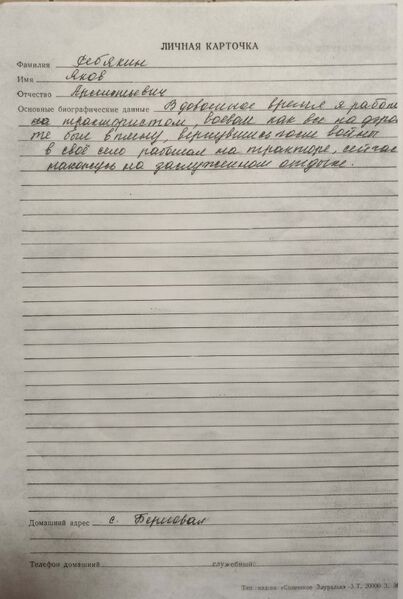 ЛИЧНАЯ КАРТОЧКА
Фамилия Гебякин
Имя Яков
Отчество
Основные биографические данные В довоенное время я работ
трактористом, воевал как все на фрон
те был в плену, вернувшись после войны
в своё село работал на тракторе, сейчас
нахожусь на заслуженном отдыхе.
Домашний адрес с. Берловая
Телефон домашний служебный:
Типография «Советское Зауралье» З. Т. 20000 З.